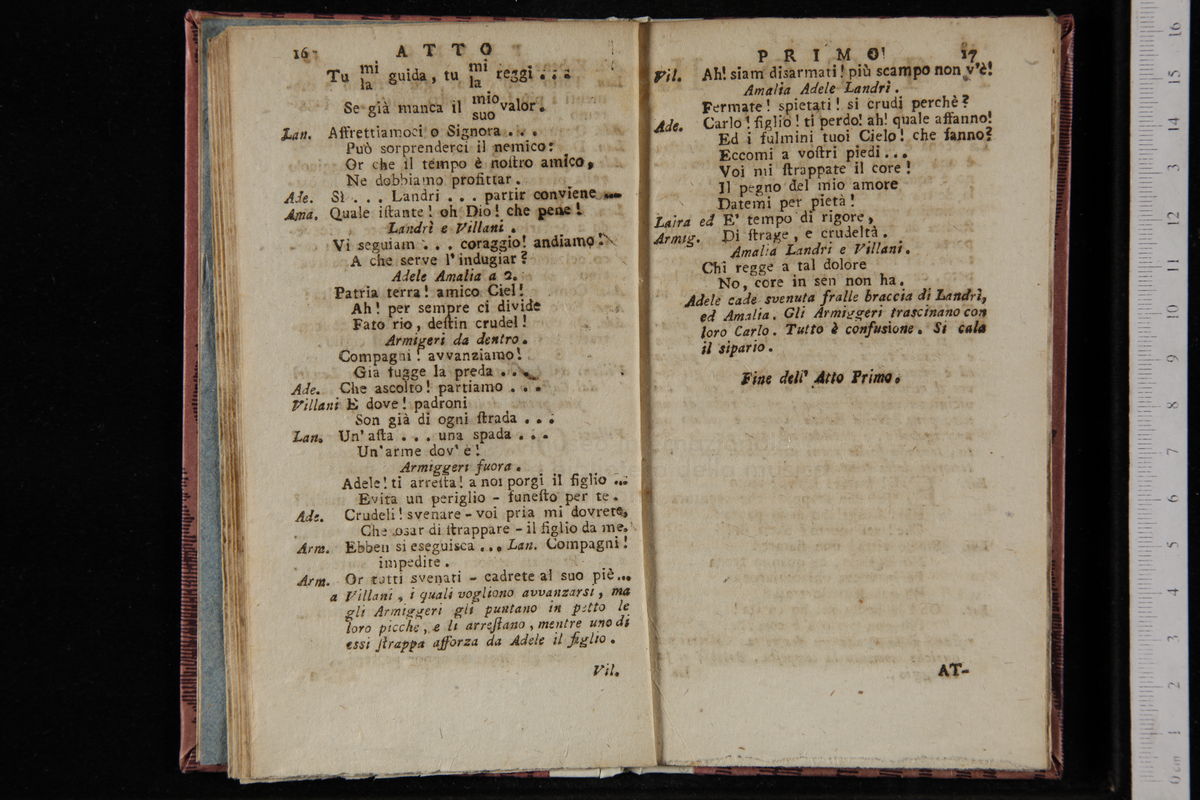 16 ATTO
Tu mi/la guida, tu mi/la reggi . . .
Se già manca il mio/suo valor.
Lan. Affrettiamoci o Signora . . .
Può sorprenderci il nemico:
Or che il tempo è noſtro amico,
Ne dobbiamo profittar.
Ade. Sì . . . Landri . . . partir conviene ...
Ama. Quale iſtante! oh Dio! che pene!
Landrì e Villani.
Vi seguiam . . . coraggio! andiamo!
A che serve l'indugiar?
Adele Amalia a 2.
Patria terra! amico Ciel!
Ah! per sempre ci divide
Fato rio, deſtin crudel!
Armigeri da dentro.
Compagni! avvanziamo!
Già fugge la preda . . .
Ade. Che ascolto! partiamo . . .
Villani E dove! padroni
Son già di ogni ſtrada . . .
Lan. Un'aſta . . . una spada . . .
Un'arme dov'è!
Armiggeri fuora.
Adele! ti arreſta! a noi porgi il figlio ...
Evita un periglio - funeſto per te.
Ade. Crudeli! svenare - voi pria mi dovrete,
Che osar di ſtrappare - il figlio da me.
Arm. Ebben si eseguisca ... Lan. Compagni!
impedite.
Arm. Or tutti svenati - cadrete al suo piè...
a Villani, i quali vogliono avvanzarsi, ma
gli Armiggeri gli puntano in petto le
loro picche, e li arreſtano, mentre uno di
essi ſtrappa afforza da Adele il figlio.
Vil.
PRIMO! 17
Vil. Ah! siam disarmati! più scampo non v'è!
Amalia Adele Landrì.
Fermate! spietati! si crudi perchè?
Ade. Carlo! figlio! ti perdo! ah! quale affanno!
Ed i fulmini tuoi Cielo! che fanno?
Eccomi a voſtri piedi...
Voi mi ſtrappate il core!
Il pegno del mio amore
Datemi per pietà!
Laira ed E' tempo di rigore,
Armig. Di ſtrage, e crudeltà.
Amalia Landri e Villani.
Chi regge a tal dolore
No, core in sen non ha.
Adele cade svenuta fralle braccia di Landrì,
ed Amalia. Gli Armiggeri trascinano con
loro Carlo. Tutto è confusione. Si cala
il sipario.
Fine dell' Atto Primo.
AT-
0 cm 1 2 3 4 5 6 7 8 9 10 11 12 13 14 15 16